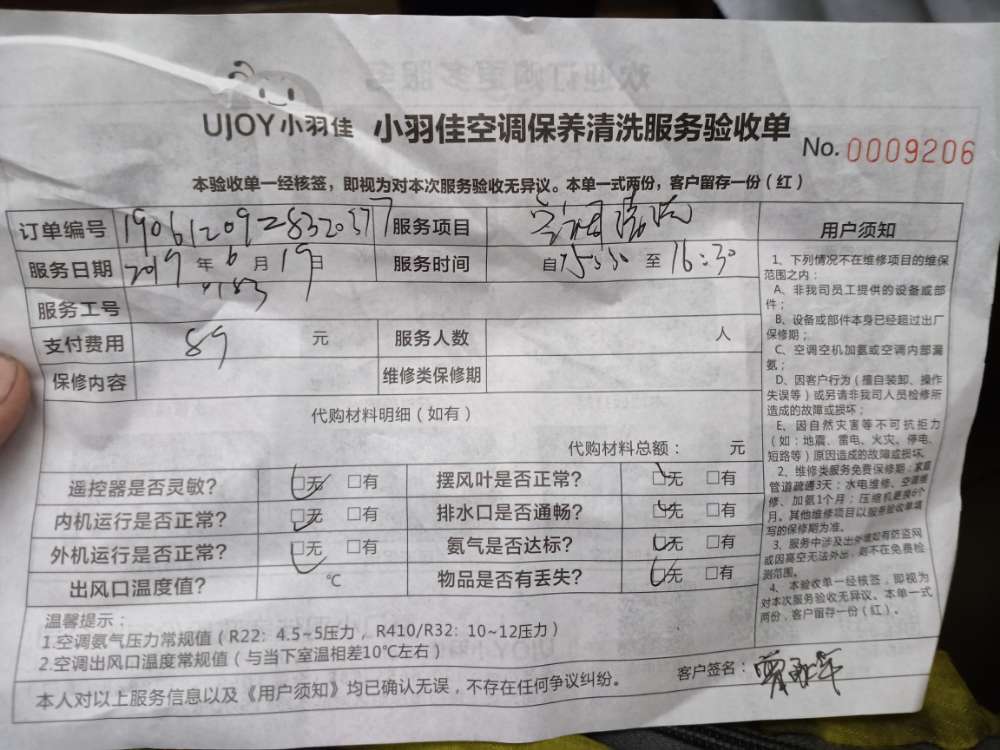 UJOY小羽佳 小羽佳空调保养清洗服务验收单
No. 0009206
本验收单一经核签，即视为对本次服务验收无异议。本单一式两份，客户留存一份（红）
订单编号 服务项目 空调清洗
服务日期 2019年6月19日 服务时间 自 至 16:30
服务工号
支付费用 89 元 服务人数 人
保修内容 维修类保修期
代购材料明细（如有）
代购材料总额： 元
遥控器是否灵敏? □无 □有 摆风叶是否正常? □无 □有
内机运行是否正常? □无 □有 排水口是否通畅? □无 □有
外机运行是否正常? □无 □有 氨气是否达标? □无 □有
出风口温度值? ℃ 物品是否有丢失? □无 □有
温馨提示：
1.空调氨气压力常规值（R22: 4.5~5压力，R410/R32: 10~12压力）
2.空调出风口温度常规值（与当下室温相差10℃左右）
本人对以上服务信息以及《用户须知》均已确认无误，不存在任何争议纠纷。
客户签名：
用户须知
1、下列情况不在维修项目的维保
范围之内：
A、非我司员工提供的设备或部
件；
B、设备或部件本身已经超过出厂
保修期；
C、空调空机加氨或空调内部漏
氨；
D、因客户行为（擅自装卸、操作
失误等）或另请非我司人员检修所
造成的故障或损坏；
E、因自然灾害等不可抗拒力
（如：地震、雷电、火灾、停电、
短路等）原因造成的故障或损坏。
2、维修类服务免费保修期：家庭
管道疏通3天；水电维修、空调维
修、加氨1个月；压缩机更换6个
月。其他维修项目以服务验收单填
写的保修期为准。
3、服务中涉及出外墙如有防盗网
或因高空无法外出，则不在免费检
测范围。
4、本验收单一经核签，即视为
对本次服务验收无异议。本单一式
两份，客户留存一份（红）。